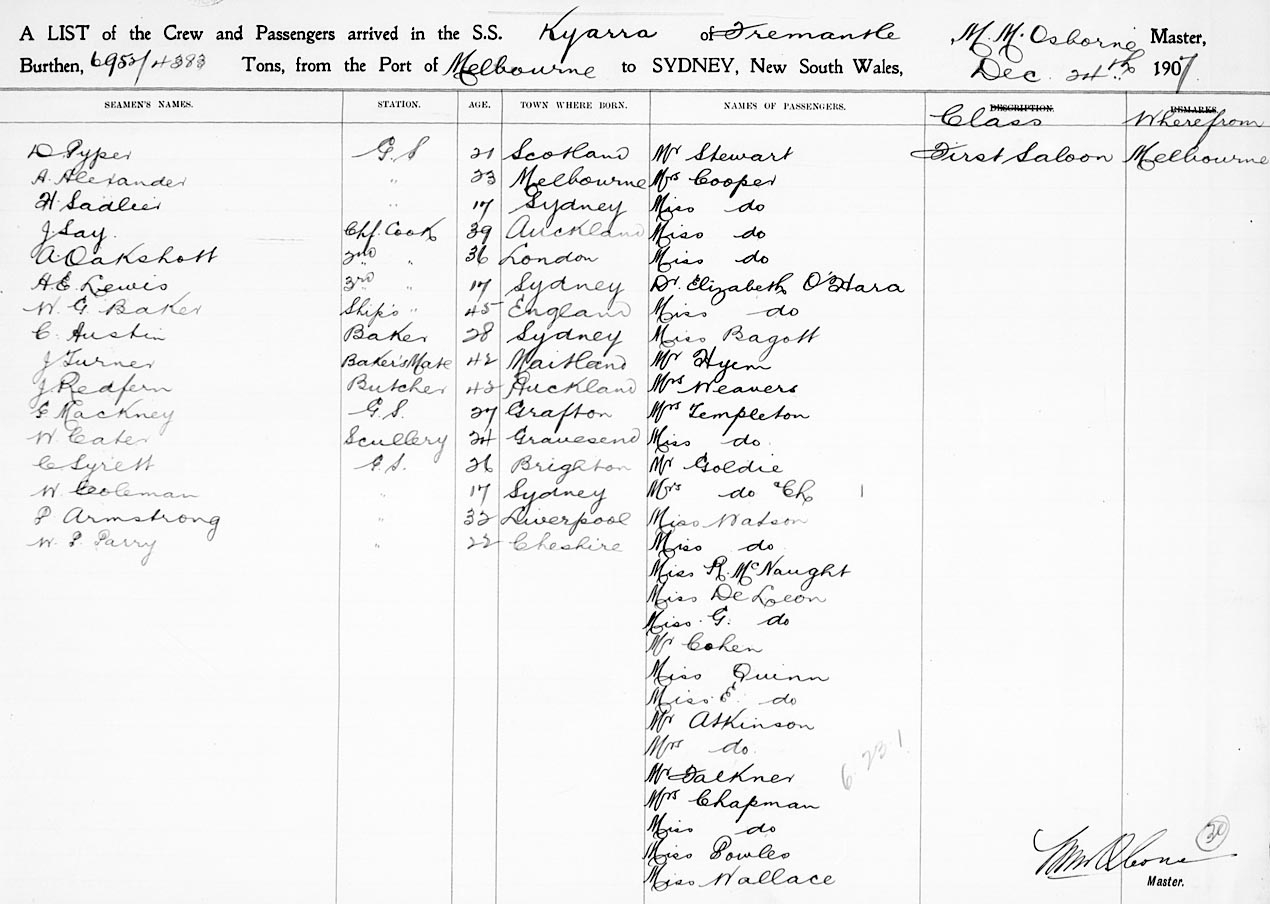 A LIST of the Crew and Passengers arrived in the S.S. Kyarra of Fremantle M. M. Osborne Master,
Burthen, 6953/4383 Tons, from the Port of Melbourne to SYDNEY, New South Wales, Dec. 24th 1907
SEAMEN'S NAMES. STATION. AGE. TOWN WHERE BORN. NAMES OF PASSENGERS. DESCRIPTION. REMARKS.
Class Wherefrom
D Pyper G.S 21 Scotland Mr Stewart First Saloon Melbourne
A. Alexander " 23 Melbourne Mrs Cooper
H Sadlier " 17 Sydney Miss do
J Say. Chf. Cook 39 Auckland Miss do
A Oakshott 2nd " 36 London Miss do
A E Lewis 3rd " 17 Sydney Dr. Elizabeth O'Hara
W. G. Baker Ship's " 45 England Miss do
C. Austin Baker 28 Sydney Miss Bagott
J Turner Baker's Mate 42 Maitland Mr Hyem
J Redfern Butcher 43 Auckland Mrs Weavers
Mackney G.S. 27 Grafton Mrs Templeton
W. Cater Scullery 24 Gravesend Miss do.
C Syrett G.S. 26 Brighton Mr Goldie
W. Coleman " 17 Sydney Mrs do & Ch 1
P Armstrong " 32 Liverpool Miss Watson
W. P. Parry " 22 Cheshire Miss do.
Miss R. McNaught
Miss De Leon
Miss G. do
Mr Cohen
Miss Quinn
Miss E. do
Mr Atkinson
Mrs do.
6. 23. 1
Mr Falkner
Mrs Chapman
Miss do
Miss Powles
Miss Wallace
30
Master.